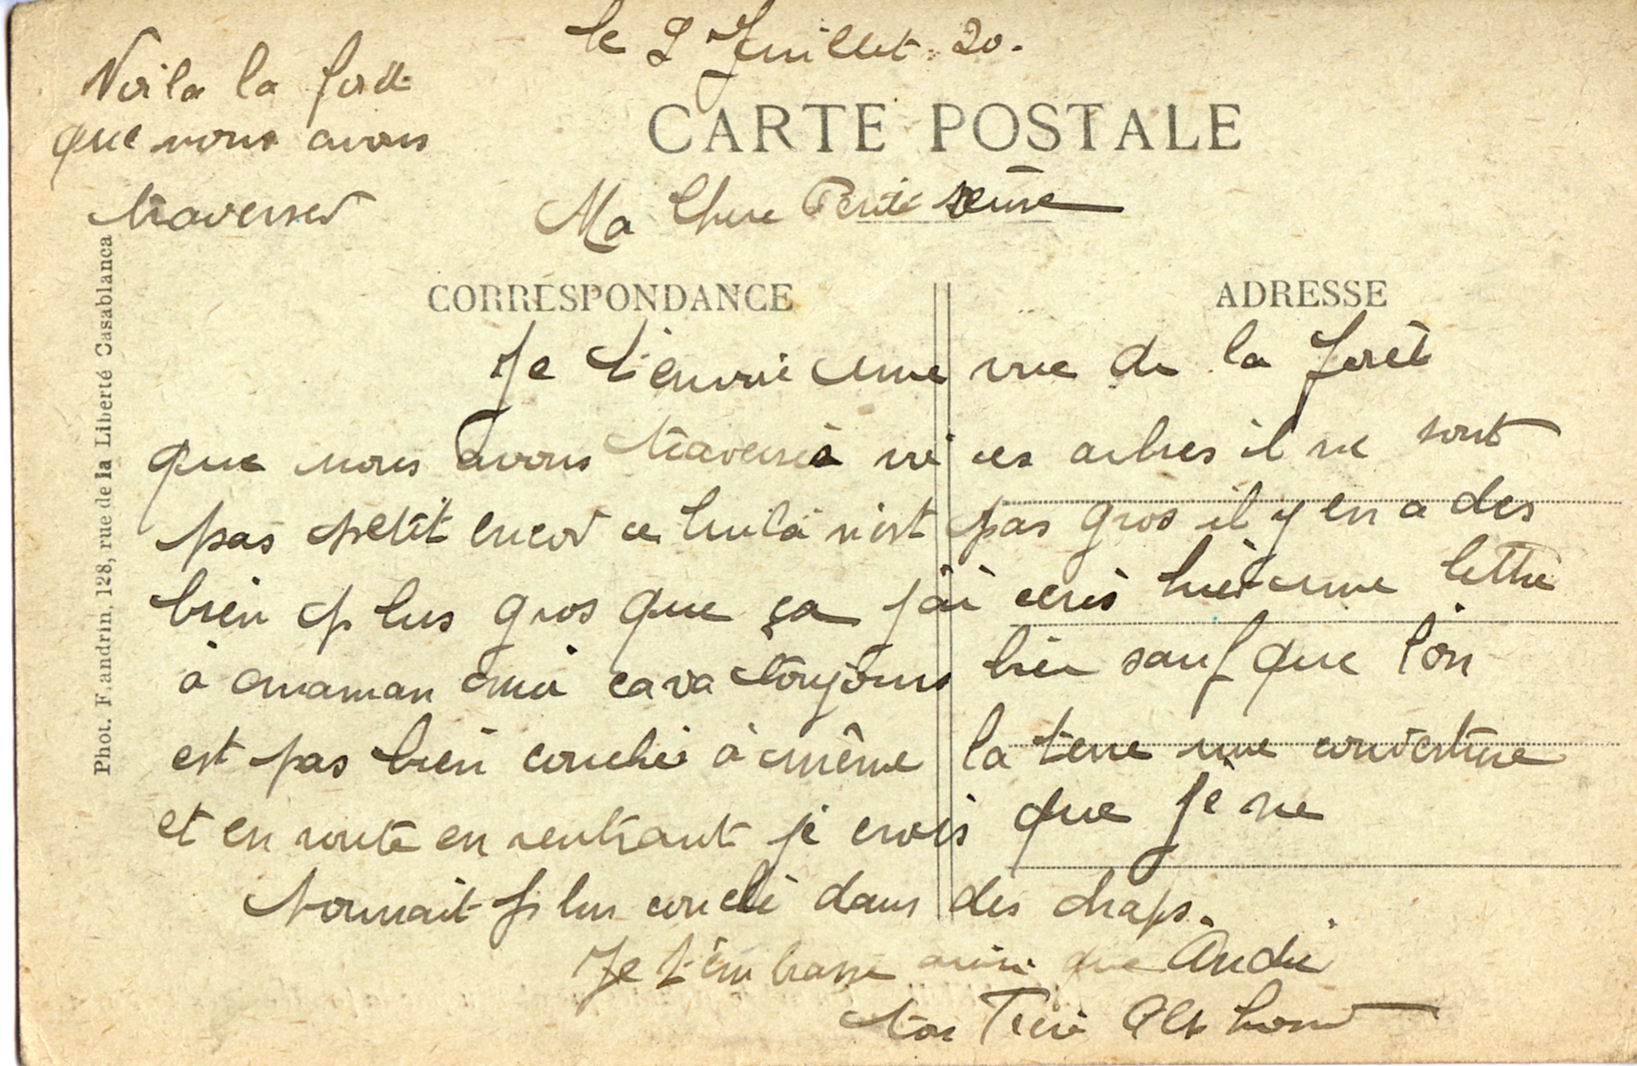 le 2 Juillet 20.
Voila la forêt
que nous avons
traverser
CARTE POSTALE
Ma Chere Petite seure
CORRESPONDANCE
ADRESSE
Je t'envoie une vue de la forêt
que nous avons traversés ces arbres il ne sont
pas petit encor ce luilà n'est pas gros il y en a des
bien plus gros que ça j'ai écris hier une lettre
à maman moi ça va toujours bien sauf que l'on
est pas bien couché à même la terre une couverture
et en route en rentrant je crois que je ne
plus couché dans des draps.
Je t'embrasse ainsi que André
ton Frère Alphonse
Phot. F.andrin, 128, rue de la Liberté Casablanca